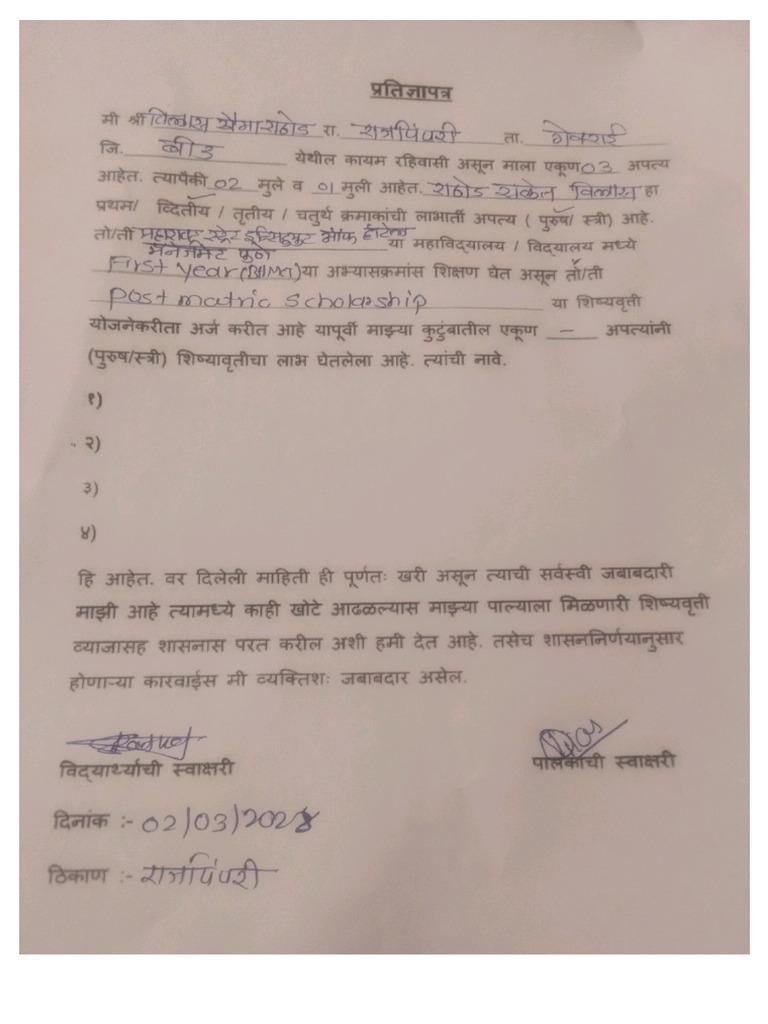 प्रतिज्ञापत्र
मी श्री विलास खेमा राठोड रा. राजपिंपरी ता. गेवराई
जि. बीड येथील कायम रहिवासी असून माला एकूण 03 अपत्य
आहेत. त्यापैकी 02 मुले व 01 मुली आहेत. राठोड संकेत विलास हा
प्रथम/ व्दितीय / तृतीय / चतुर्थ क्रमाकांची लाभार्ती अपत्य ( पुरुष/ स्त्री) आहे.
तो/ती महाराष्ट्र स्टेट इन्स्टिट्युट ऑफ हॉटेल या महाविद्यालय / विद्यालय मध्ये
मॅनेजमेंट पुणे
First year (BHM) या अभ्यासक्रमांस शिक्षण घेत असून तो/ती
Post matric scholarship या शिष्यवृत्ती
योजनेकरीता अर्ज करीत आहे यापूर्वी माझ्या कुटुंबातील एकूण – अपत्यांनी
(पुरुष/स्त्री) शिष्यावृतीचा लाभ घेतलेला आहे. त्यांची नावे.
१)
२)
३)
४)
हि आहेत. वर दिलेली माहिती ही पूर्णतः खरी असून त्याची सर्वस्वी जबाबदारी
माझी आहे त्यामध्ये काही खोटे आढळल्यास माझ्या पाल्याला मिळणारी शिष्यवृत्ती
व्याजासह शासनास परत करील अशी हमी देत आहे. तसेच शासननिर्णयानुसार
होणाऱ्या कारवाईस मी व्यक्तिशः जबाबदार असेल.
विद्यार्थ्याची स्वाक्षरी पालकाची स्वाक्षरी
दिनांक :- 02/03/2024
ठिकाण :- राजपिंपरी